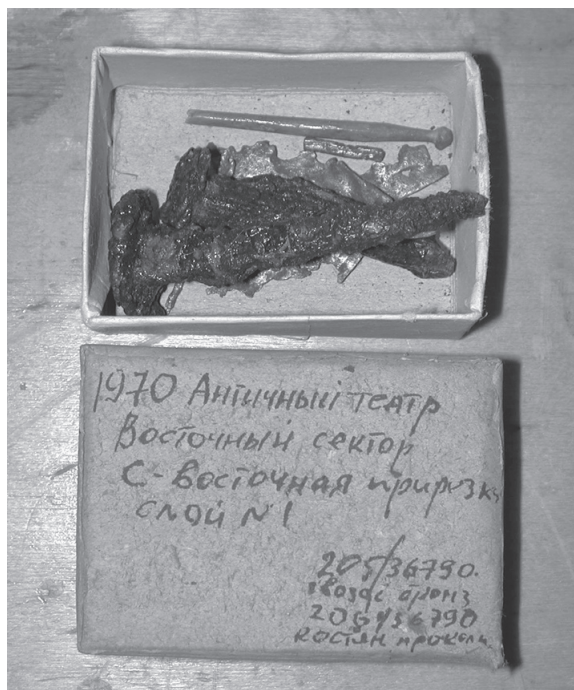 1970 Античный театр
Восточный сектор
С-Восточная прирезка
слой N 1
205/36790.
гвозди бронз
206/36790
костян проколк